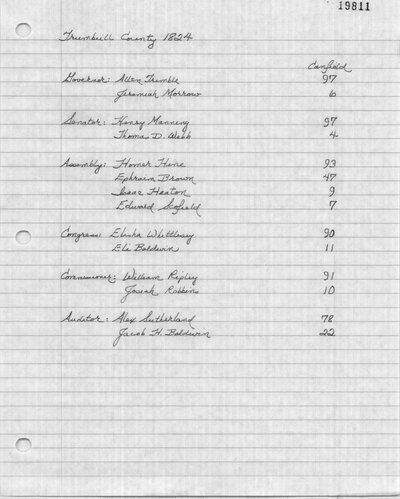 19811
Trumbull County 1824
Canfield
Governor: Allen Trimble 97
Jeremiah Morrow 6
Senator: Henry Manning 97
Thomas D. Webb 4
Assembly: Homer Hine 93
Ephraim Brown 47
Isaac Heaton 9
Edward Scofield 7
Congress: Elisha Whittlesey 90
Eli Baldwin 11
Commissioner: William Ripley 91
Josiah Robbins 10
Auditor: Alex Sutherland 78
Jacob H. Baldwin 22